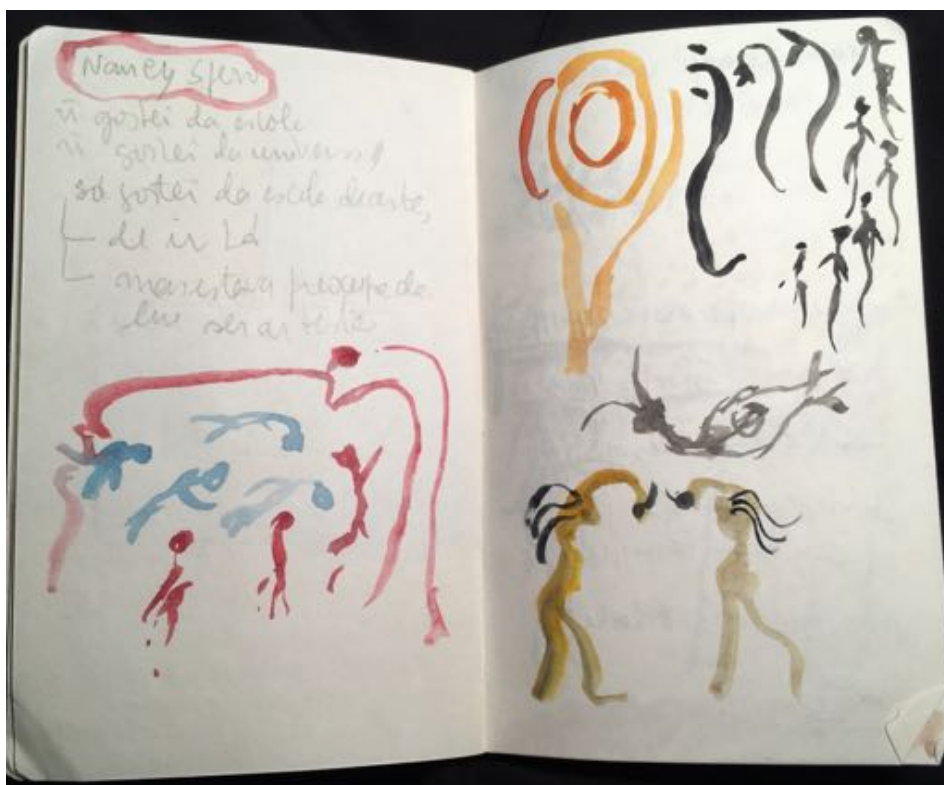 Nancy Spero
ñ gostei da escola
ñ gostei da univers//
só gostei da escola de arte,
de ir lá
mas estava preocupada
em ser artista